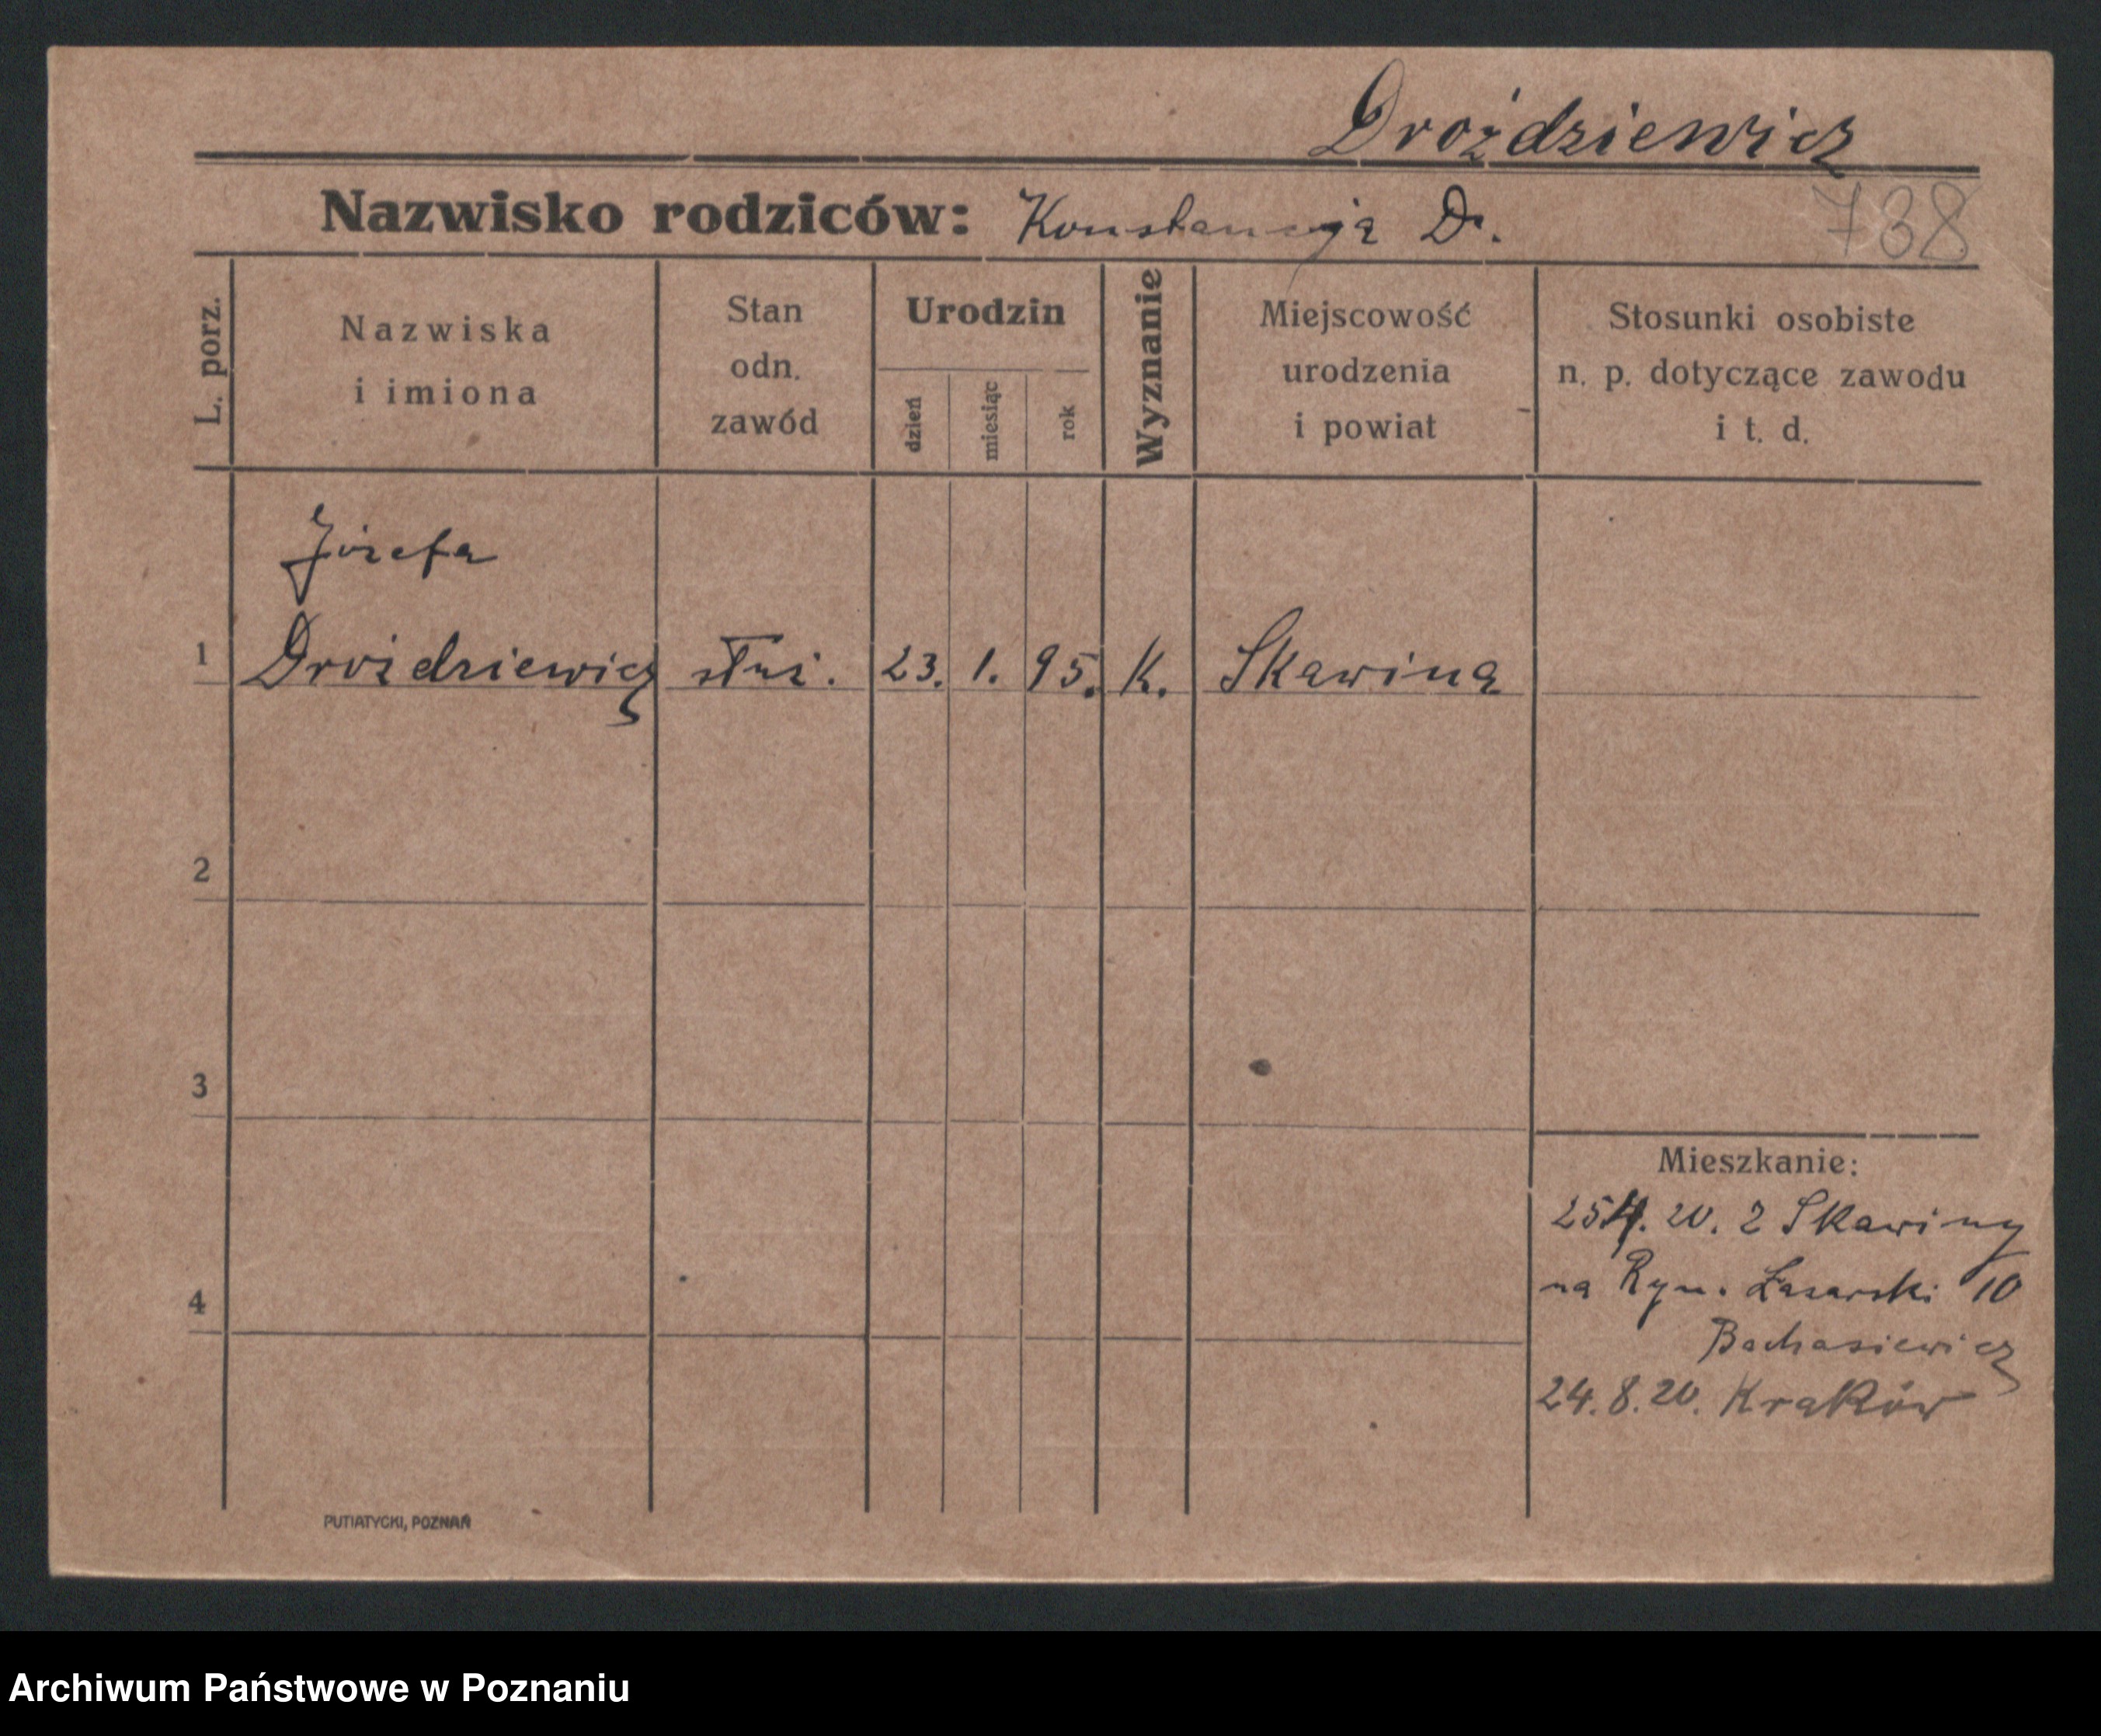 Droździewicz
Nazwisko rodziców: Konstancja D.
738
L. porz.
Nazwiska
i imiona
Stan
odn.
zawód
Urodzin
dzień
miesiąc
rok
Wyznanie
Miejscowość
urodzenia
i powiat
Stosunki osobiste
n. p. dotyczące zawodu
i t. d.
Józefa
1 Droździewicz służ. 23. 1. 95. K. Skawina
2
3
Mieszkanie:
20. z Skawiny
na Ryn. Łazarski 10
4
24.8.20. Kraków
PUTIATYCKI, POZNAŃ
Archiwum Państwowe w Poznaniu